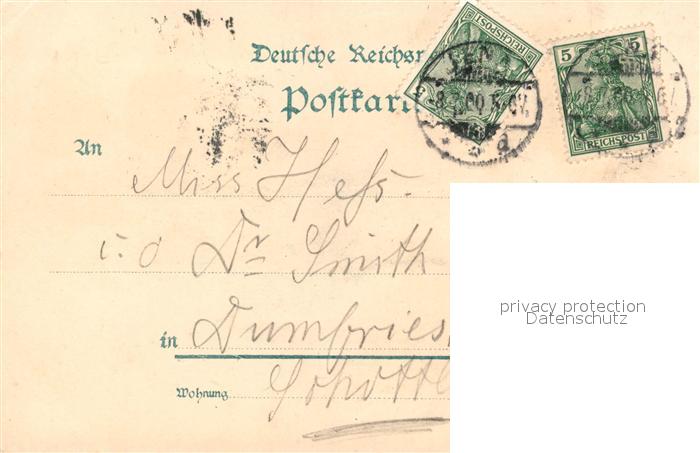 Deutsche Reichsp
Postkart
REICHSPOST
5
5 5
REICHSPOST
JENA
8. 00. 5-6 V.
* a
An
Miss Hess.
i. o Dr Smith
in Dumfries
Wohnung Schottl
privacy protection
Datenschutz